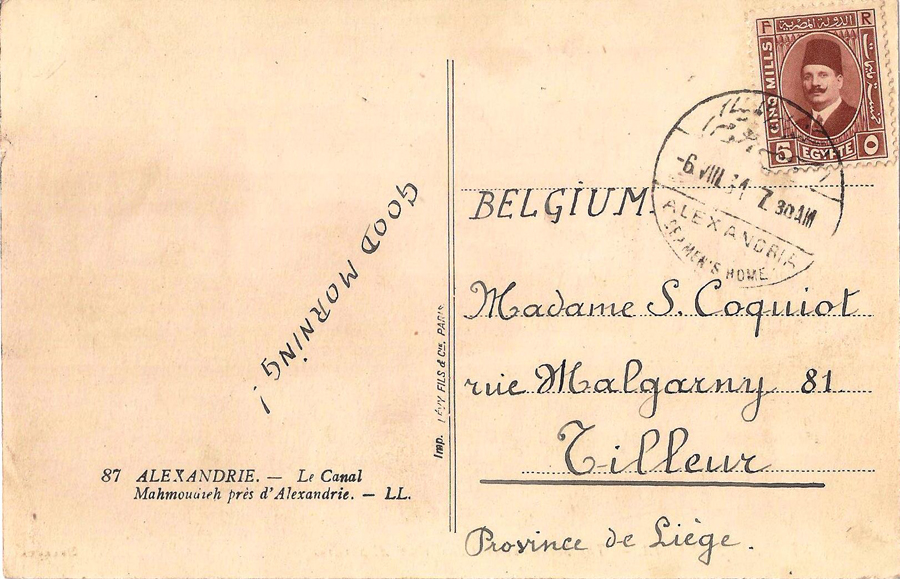 GOOD MORNING!
87 ALEXANDRIE. — Le Canal
Mahmoudieh près d'Alexandrie. — LL.
Imp. LÉVY FILS & Cie, PARIS
F الدولة المصرية R
CINQ MILLS
5 EGYPTE
-6 VIII 31 7.30AM
ALEXANDRIA
SEAMEN'S HOME
BELGIUM.
Madame S. Coquiot
rue Malgarny 81.
Tilleur
Province de Liège.